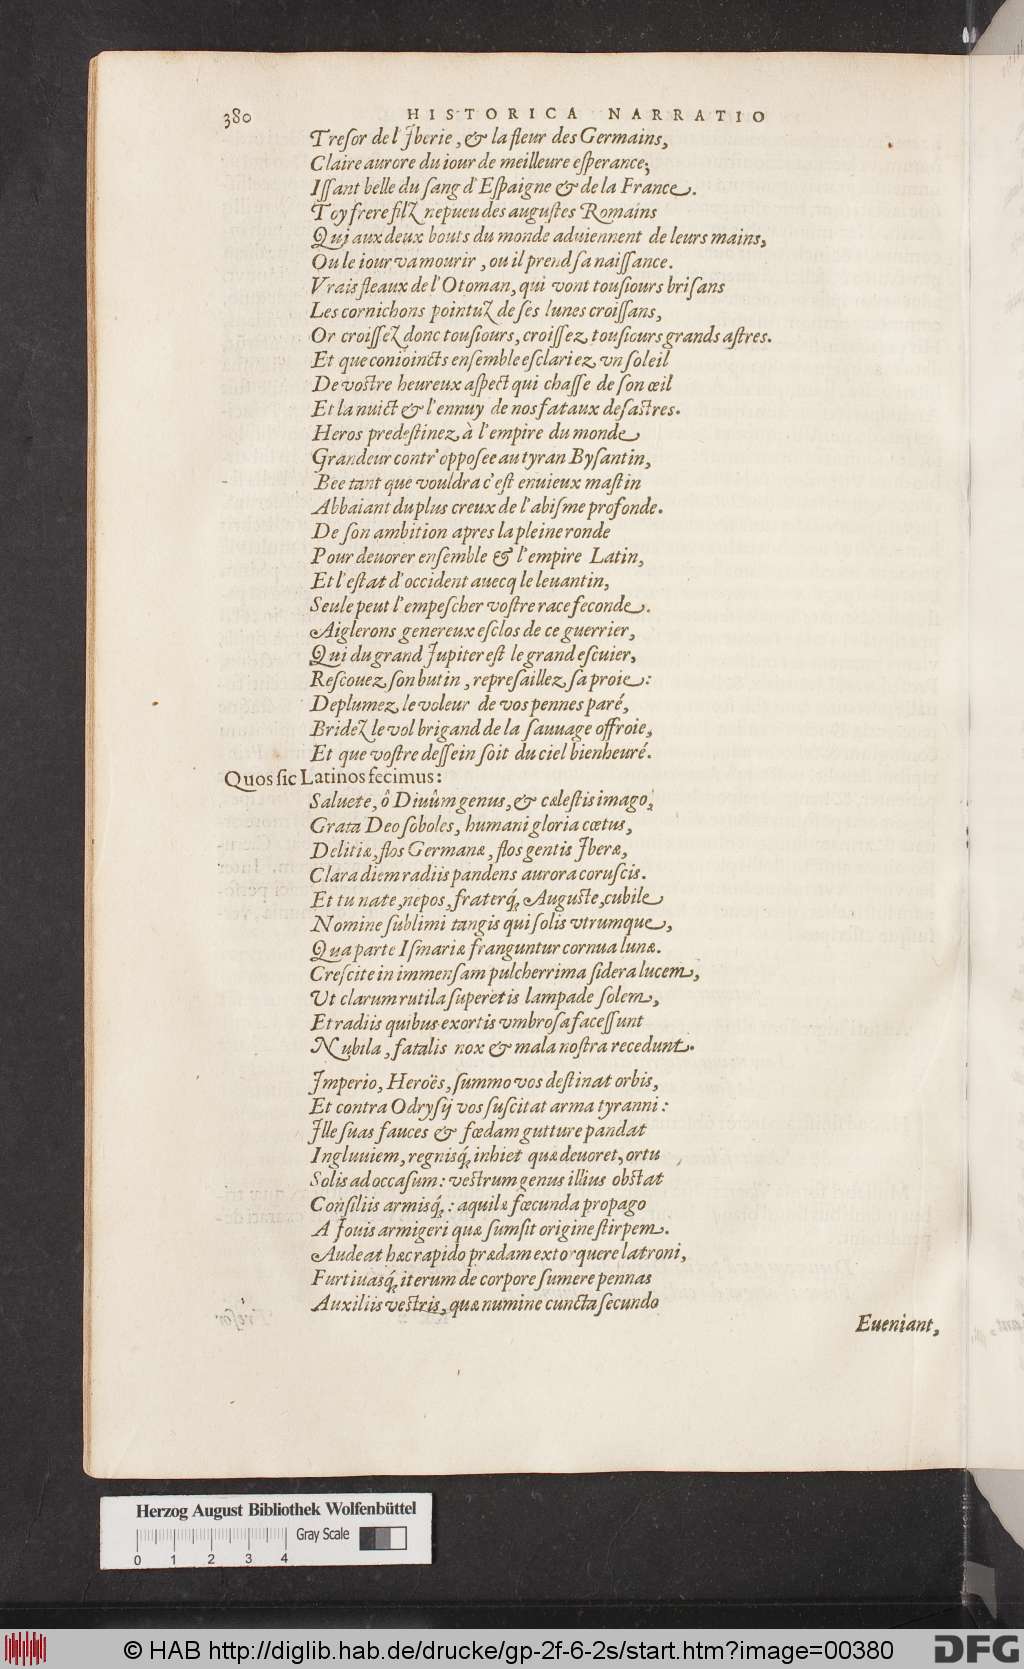 380 HISTORICA NARRATIO
Tresor de l'Iberie, & la fleur des Germains,
Claire aurore du iour de meilleure esperance;
Issant belle du sang d'Espaigne & de la France.
Toy frere filz nepueu des augustes Romains
Qui aux deux bouts du monde aduiennent de leurs mains,
Ou le iour va mourir, ou il prend sa naissance.
Vrais fleaux de l'Otoman, qui vont tousiours brisans
Les cornichons pointuz de ses lunes croissans,
Or croissez donc tousiours, croissez tousiours grands astres.
Et que conioincts ensemble esclariez vn soleil
De vostre heureux aspect qui chasse de son œil
Et la nuict & l'ennuy de nos fataux desastres.
Heros predestinez à l'empire du monde
Grandeur contr'opposee au tyran Bysantin,
Bee tant que vouldra c'est enuieux mastin
Abbaiant du plus creux de l'abisme profonde.
De son ambition apres la pleine ronde
Pour deuorer ensemble & l'empire Latin,
Et l'estat d'occident auecq le leuantin,
Seule peut l'empescher vostre race feconde.
Aiglerons genereux esclos de ce guerrier,
Qui du grand Jupiter est le grand escuier,
Rescouez son butin, represaillez sa proie:
Deplumez le voleur de vos pennes paré,
Bridez le vol brigand de la sauuage offroie,
Et que vostre dessein soit du ciel bienheuré.
Quos sic Latinos fecimus:
Saluete, ô Diuûm genus, & cælestis imago,
Grata Deo soboles, humani gloria cœtus,
Delitiæ, flos Germanæ, flos gentis Jberæ,
Clara diem radiis pandens aurora coruscis.
Et tu nate, nepos, fraterq́, Auguste, cubile
Nomine sublimi tangis qui solis vtrumque,
Qua parte Ismariæ franguntur cornua lunæ.
Crescite in immensam pulcherrima sidera lucem,
Ut clarum rutila superetis lampade solem,
Et radiis quibus exortis vmbrosa facessunt
Nubila, fatalis nox & mala nostra recedunt.
Jmperio, Heroës, summo vos destinat orbis,
Et contra Odrysij vos suscitat arma tyranni:
Jlle suas fauces & fœdam gutture pandat
Ingluuiem, regnisq́, inhiet quæ deuoret, ortu
Solis ad occasum: vestrum genus illius obstat
Consiliis armisq́,: aquilæ fœcunda propago
A Jouis armigeri quæ sumsit origine stirpem.
Audeat hæc rapido prædam extorquere latroni,
Furtiuasq́, iterum de corpore sumere pennas
Auxiliis vestris, quæ numine cuncta secundo
Eueniant,
Herzog August Bibliothek Wolfenbüttel
Gray Scale
0 1 2 3 4
© HAB http://diglib.hab.de/drucke/gp-2f-6-2s/start.htm?image=00380
DFG